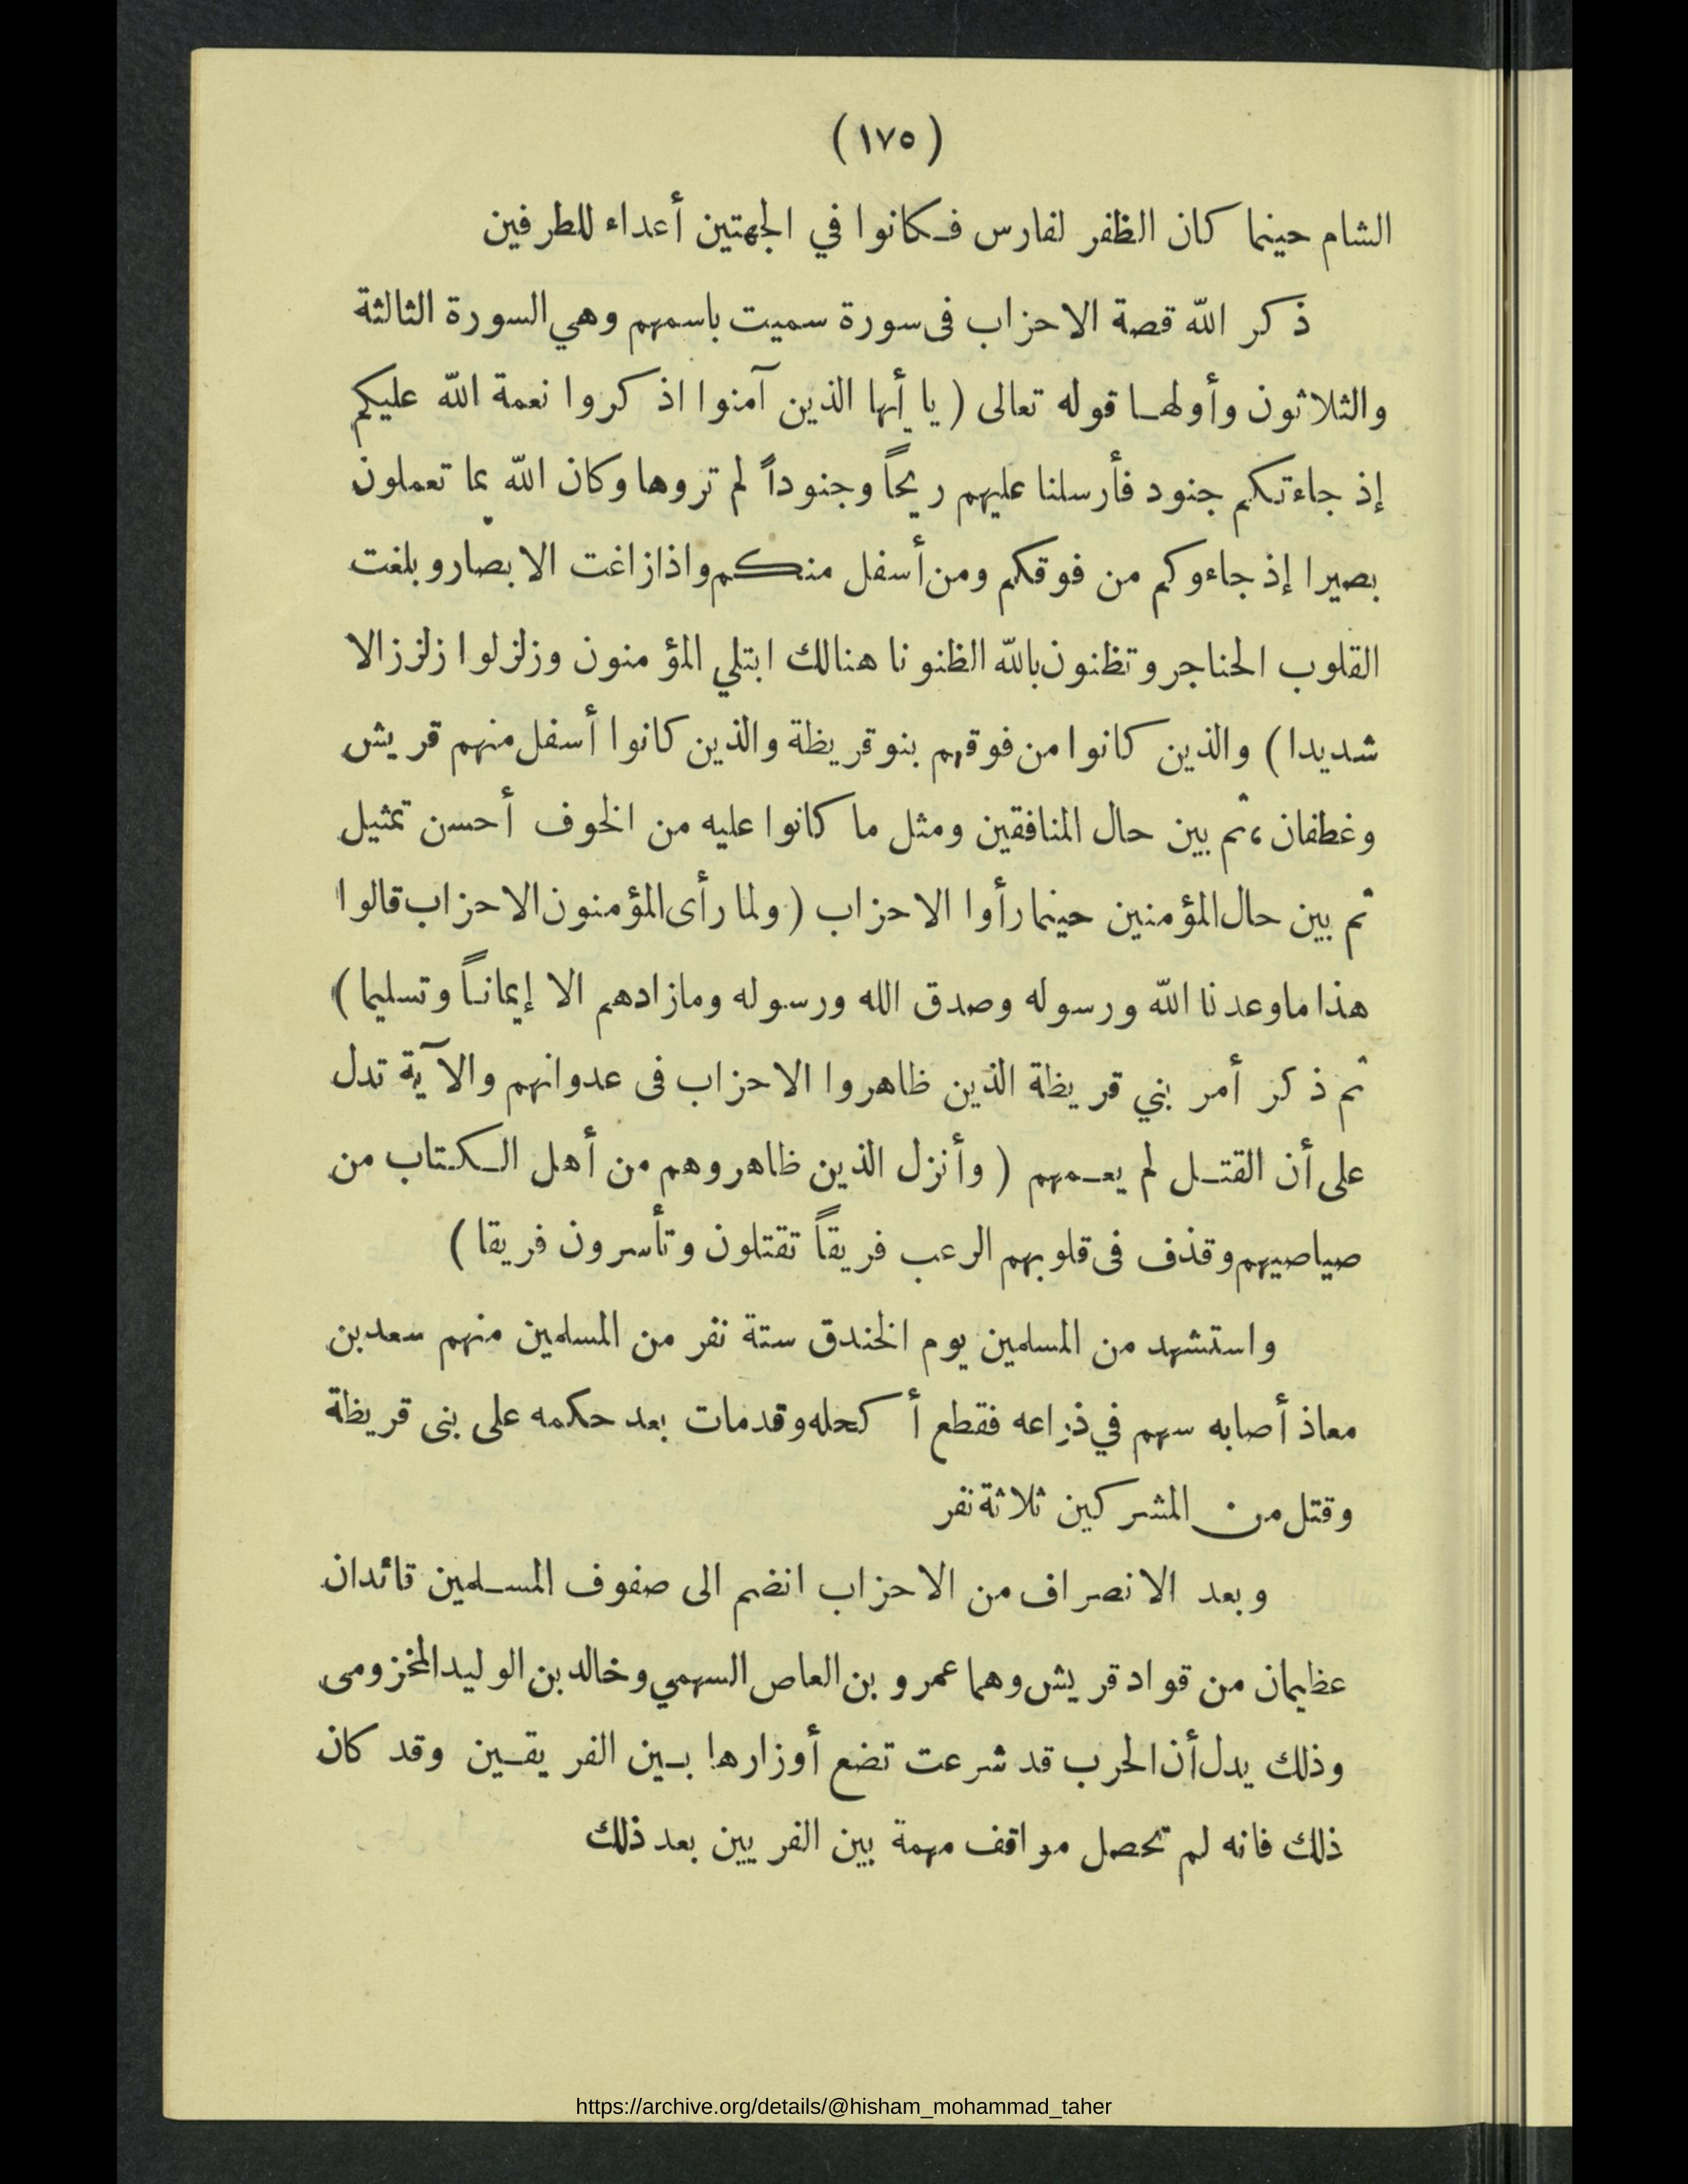 (١٧٥)
الشام حينما كان الظفر لفارس فكانوا في الجهتين أعداء للطرفين
ذكر الله قصة الاحزاب فى سورة سميت باسمهم وهي السورة الثالثة
والثلاثون وأولها قوله تعالى (يا أيها الذين آمنوا اذكروا نعمة الله عليكم
إذ جاءتكم جنود فأرسلنا عليهم ريحاً وجنوداً لم تروها وكان الله بما تعملون
بصيرا إذ جاءوكم من فوقكم ومن أسفل منكم واذا زاغت الابصار وبلغت
القلوب الحناجر وتظنون بالله الظنونا هنالك ابتلي المؤمنون وزلزلوا زلززالا
شديدا) والذين كانوا من فوقهم بنو قريظة والذين كانوا أسفل منهم قريش
وغطفان، ثم بين حال المنافقين ومثل ما كانوا عليه من الخوف أحسن تمثيل
ثم بين حال المؤمنين حينما رأوا الاحزاب (ولما رأى المؤمنون الاحزاب قالوا
هذا ما وعدنا الله ورسوله وصدق الله ورسوله وما زادهم الا إيماناً وتسليما)
ثم ذكر أمر بني قريظة الذين ظاهروا الاحزاب فى عدوانهم والآية تدل
على أن القتل لم يعمهم (وأنزل الذين ظاهروهم من أهل الكتاب من
صياصيهم وقذف فى قلوبهم الرعب فريقاً تقتلون وتأسرون فريقا)
واستشهد من المسلمين يوم الخندق ستة نفر من المسلمين منهم سعد بن
معاذ أصابه سهم في ذراعه فقطع أكحله وقد مات بعد حكمه على بنى قريظة
وقتل من المشركين ثلاثة نفر
وبعد الانصراف من الاحزاب انضم الى صفوف المسلمين قائدان
عظيمان من قواد قريش وهما عمرو بن العاص السهمي وخالد بن الوليد المخزومى
وذلك يدل أن الحرب قد شرعت تضع أوزارها بين الفريقين وقد كان
ذلك فانه لم تحصل مواقف مهمة بين الفريين بعد ذلك
https://archive.org/details/@hisham_mohammad_taher